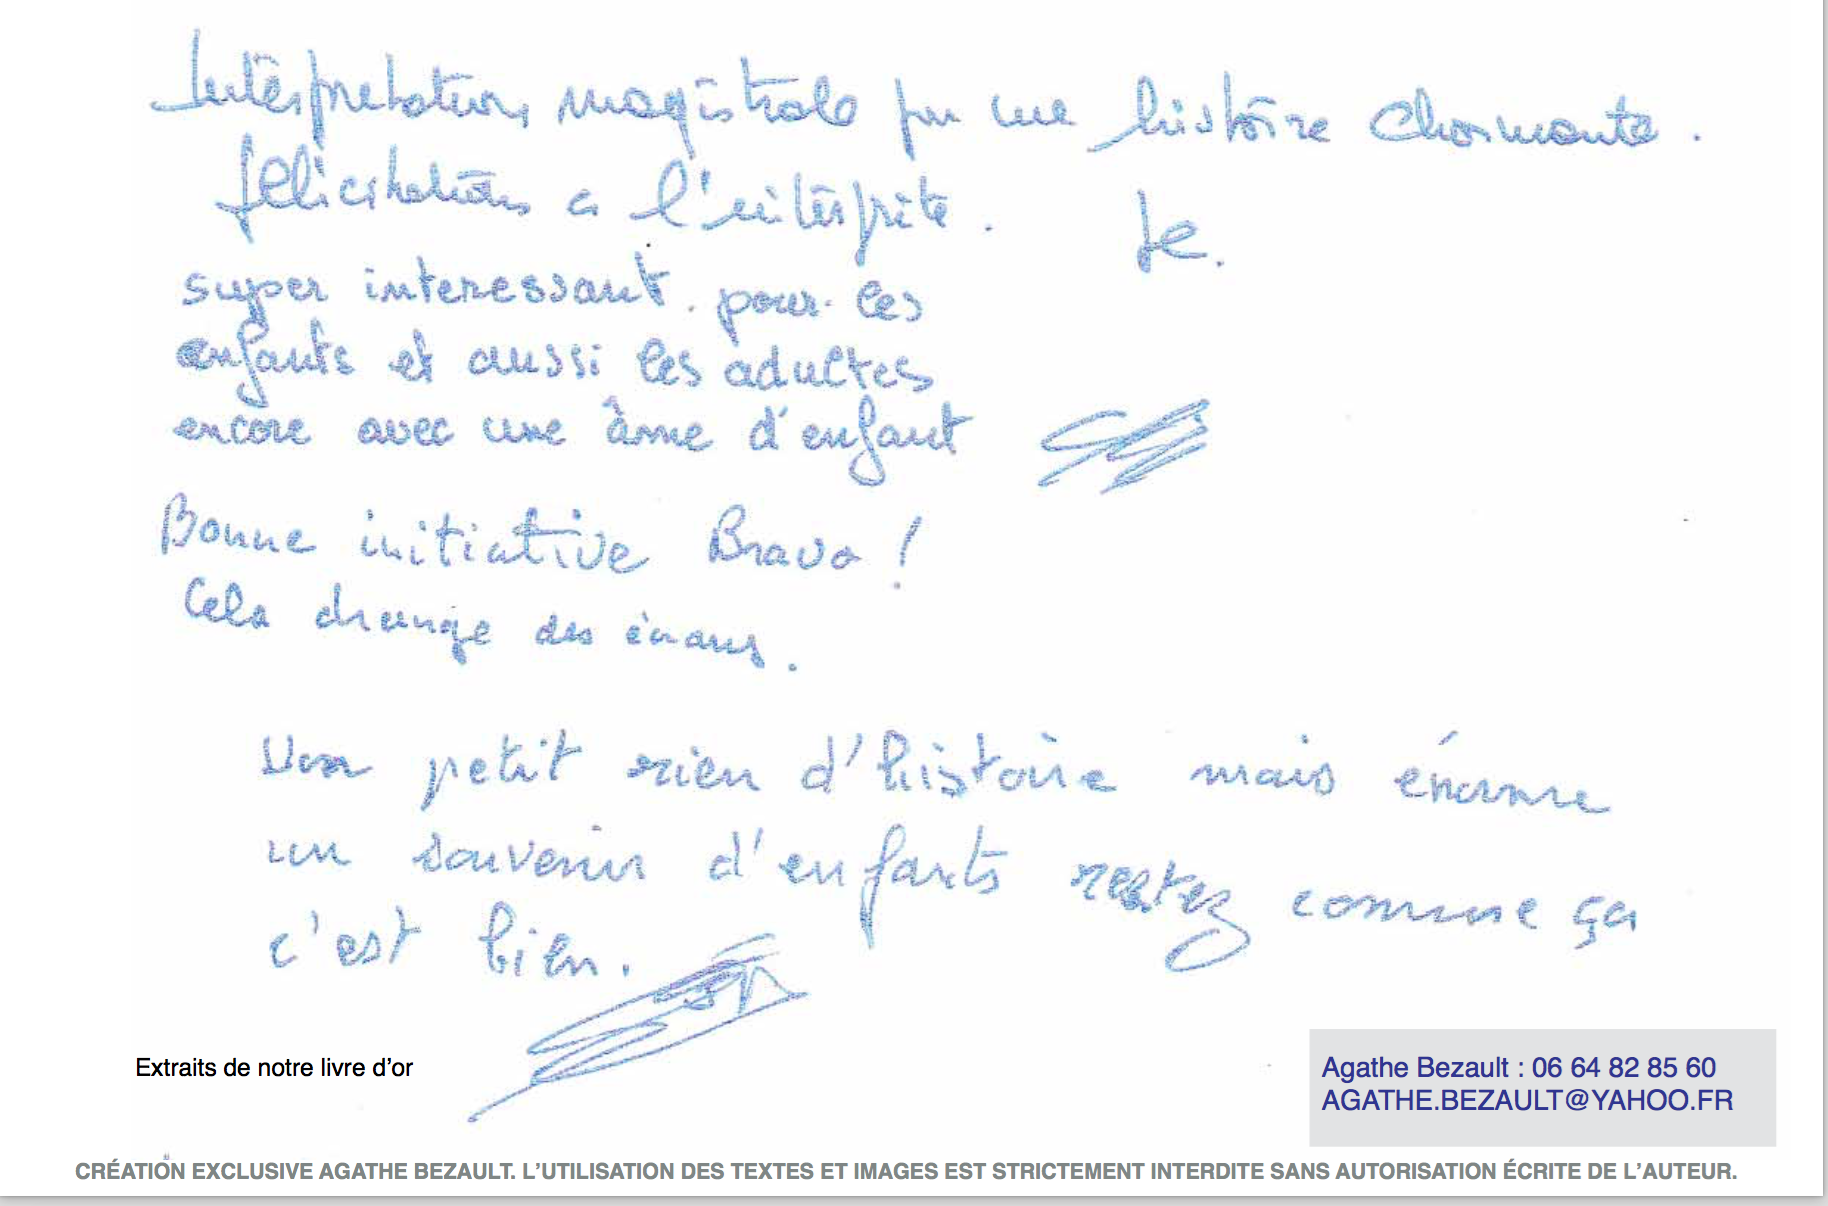 Interprétation magistrale par une histoire charmante.
félicitations a l'interprète.
super interessant. pour les
enfants et aussi les adultes
encore avec une âme d'enfant
Bonne initiative Bravo !
Cela change des écrans.
petit rien d'histoire mais énorme
un souvenir d'enfants restez comme ça
c'est bien.
Extraits de notre livre d'or
Agathe Bezault : 06 64 82 85 60
AGATHE.BEZAULT@YAHOO.FR
CRÉATION EXCLUSIVE AGATHE BEZAULT. L'UTILISATION DES TEXTES ET IMAGES EST STRICTEMENT INTERDITE SANS AUTORISATION ÉCRITE DE L'AUTEUR.